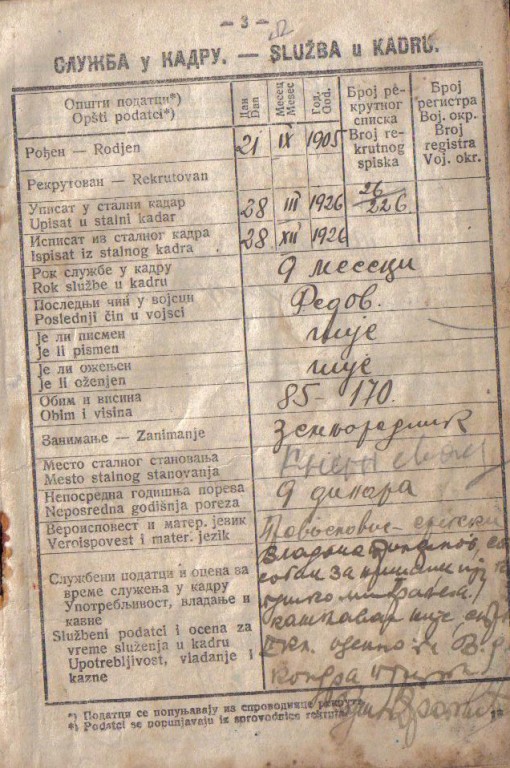 — 3 —
СЛУЖБА у КАДРУ. — SLUŽBA u KADRU.
Општи податци*)
Opšti podatci*)
Дан
Dan
Месец
Mesec
Год.
God.
Број ре-
крутног
списка
Broj re-
krutnog
spiska
Број
регистра
Вој. окр.
Broj
registra
Voj. okr.
Рођен — Rodjen
21 IX 1905
Рекрутован — Rekrutovan
Уписат у стални кадар
Upisat u stalni kadar
28 III 1926
26
226
Исписат из сталног кадра
Ispisat iz stalnog kadra
28 XII 1926
Рок службе у кадру
Rok službe u kadru
9 месеци
Последњи чин у војсци
Poslednji čin u vojsci
Редов.
Је ли писмен
Je li pismen
није
Је ли ожењен
Je li oženjen
није
Обим и висина
Obim i visina
85 - 170.
Занимање — Zanimanje
земљорадник
Место сталног становања
Mesto stalnog stanovanja
Непосредна годишња пореза
Neposredna godišnja poreza
9 динара
Вероисповест и матер. језик
Veroispovest i mater. jezik
српски
Службени податци и оцена за
време служења у кадру
Употребљивост, владање и
казне
Službeni podatci i ocena za
vreme služenja u kadru
Upotrebljivost, vladanje i
kazne
Владања
за
није
*) Податци се попуњавају из спроводнице рекрута.
*) Podatci se popunjavaju iz sprovodnice rekruta.